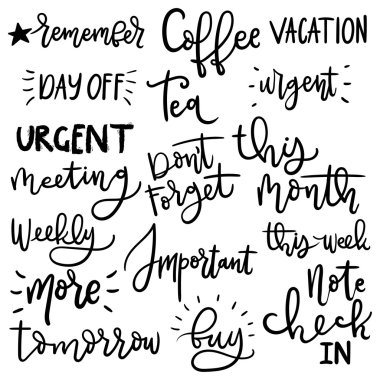 remember
Coffee
VACATION
DAY OFF
Tea
urgent
URGENT
Don't
Forget
this
month
meeting
Weekly
Important
this week
more
Note
tomorrow
buy
check
IN